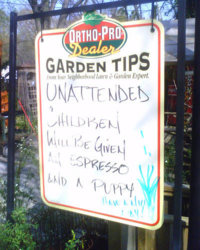 ORTHO-PRO
Dealer
GARDEN TIPS
From Your Neighborhood Lawn & Garden Expert.
UNATTENDED
CHILDREN
WILL BE GIVEN
AN ESPRESSO
AND A PUPPY